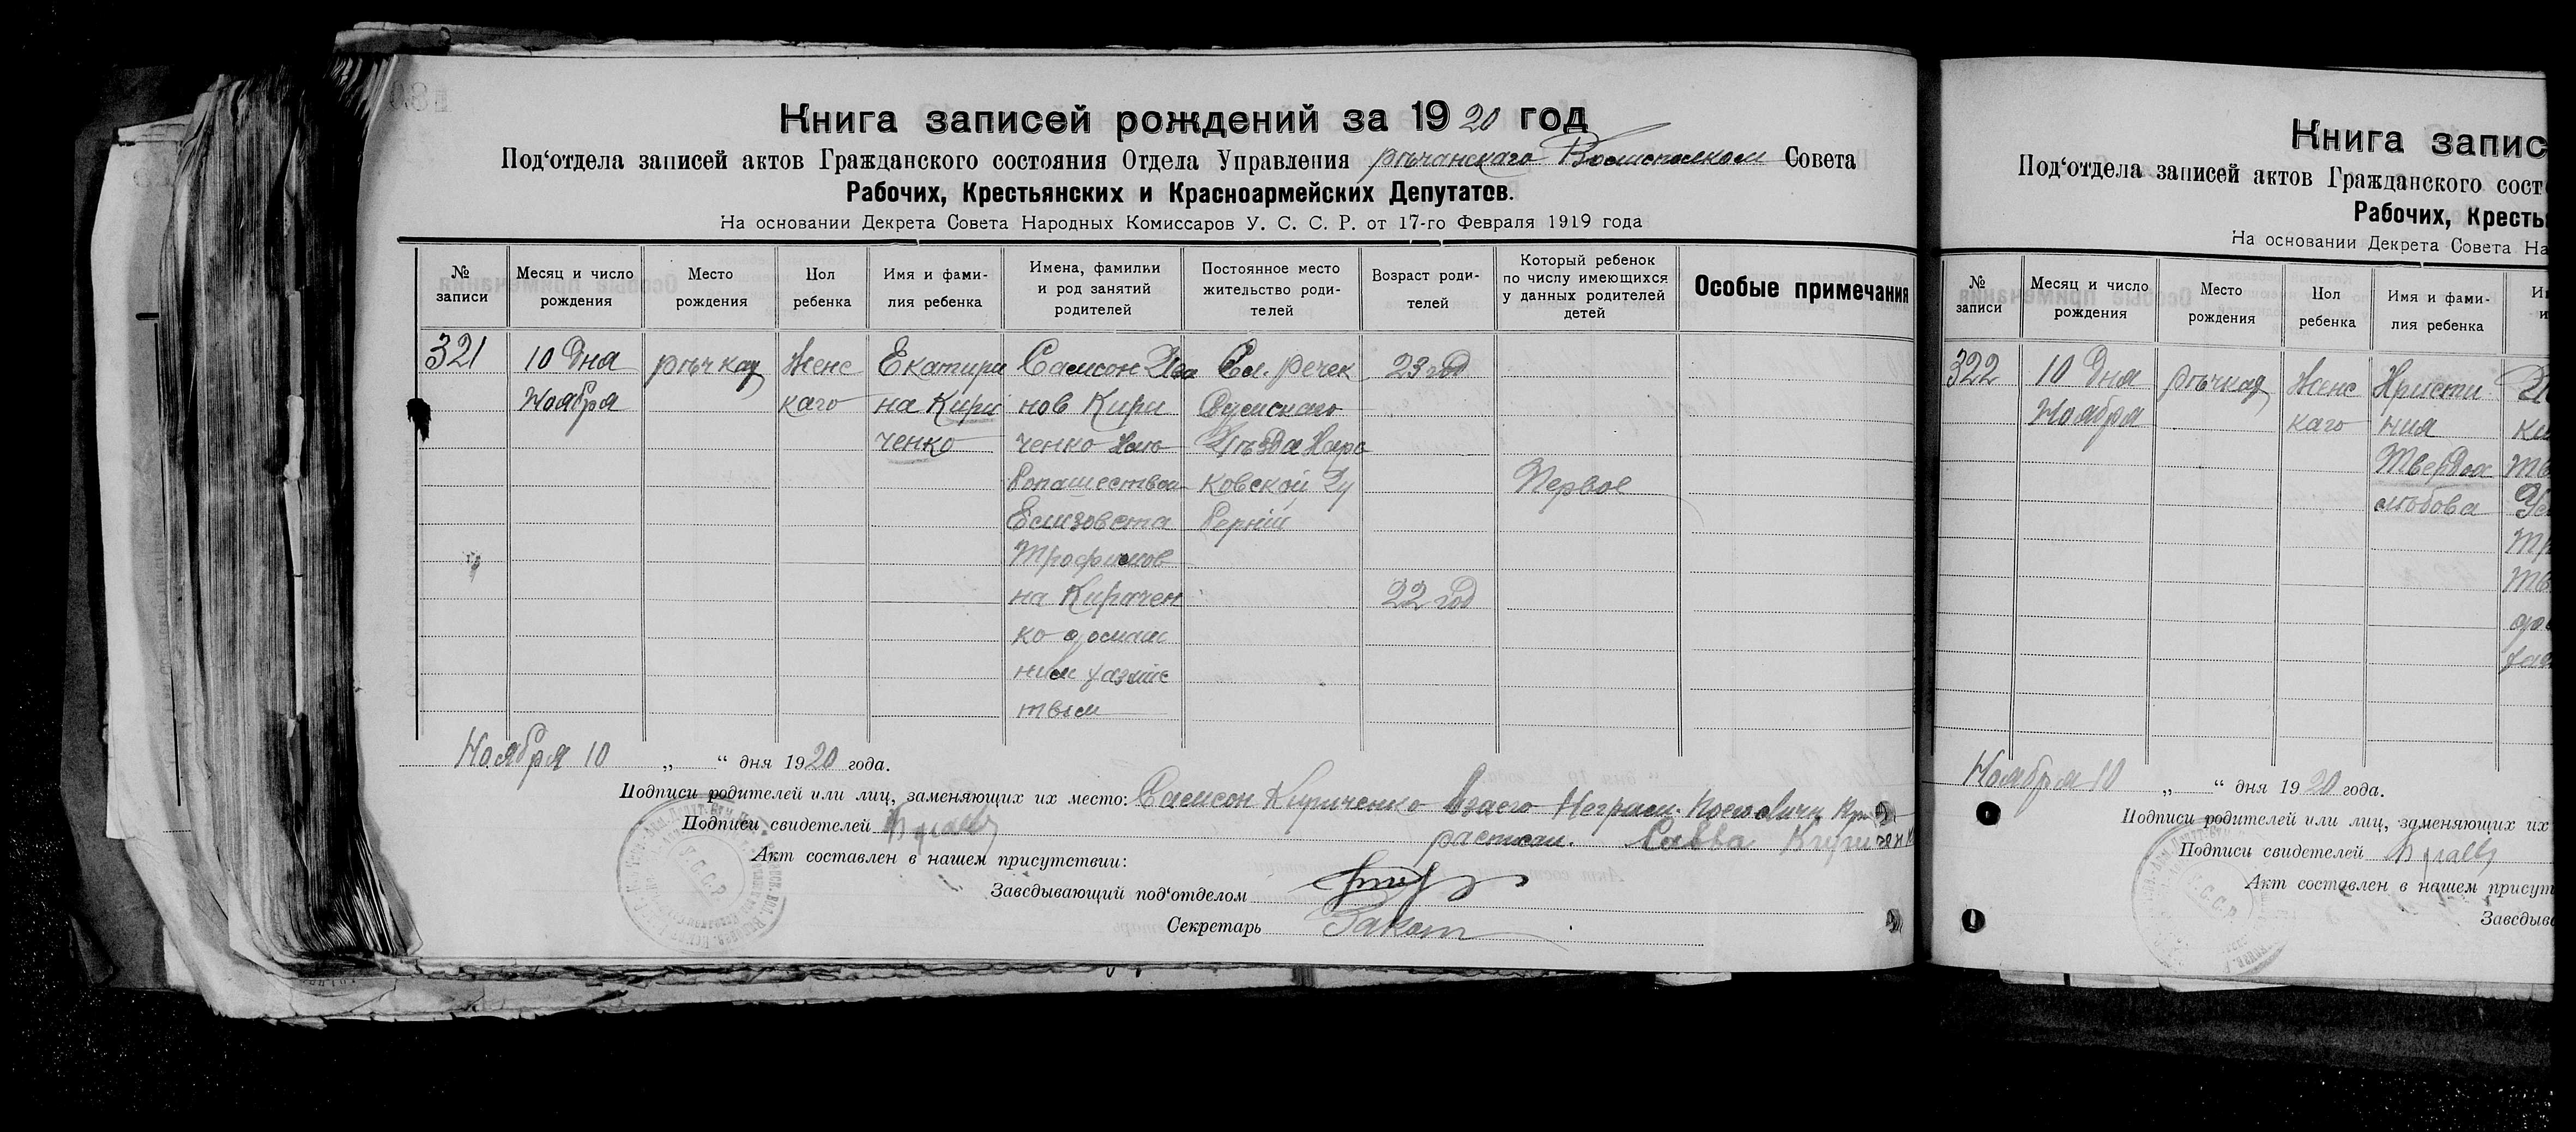 Книга записей рождений за 1920 год
Под‘отдела записей актов Гражданского состояния Отдела Управления рѣчанскаго Волисполком Совета
Рабочих, Крестьянских и Красноармейских Депутатов.
На основании Декрета Совета Народных Комиссаров У. С. С. Р. от 17-го Февраля 1919 года
№
записи
Месяц и число
рождения
Место
рождения
Пол
ребенка
Имя и фами-
лия ребенка
Имена, фамилии
и род занятий
родителей
Постоянное место
жительство роди-
телей
Возраст роди-
телей
Который ребенок
по числу имеющихся
у данных родителей
детей
Особые примечания
321
10 Дня
Ноября
рѣчкая
Женс
каго
Екатири
на Кири
ченко
Самсон Ива
нов Кири
ченко
Елизовета
Трофимов
на Кирачен
ко
твом
Сл. Речек
Сумскаго
Уѣзда Харо
ковской Гу
берніи
23 год
22 год
Первое
Ноября 10 „ “ дня 1920 года.
Подписи родителей или лиц, заменяющих их место: Самсон Кириченко
Подписи свидетелей
Савва Кириченк
Акт составлен в нашем присутствии:
Заведывающий под‘отделом
Секретарь
У.С.С.Р.
Книга запис
Под‘отдела записей актов Гражданского сост
Рабочих, Кресть
На основании Декрета Совета На
№
записи
Месяц и число
рождения
Место
рождения
Пол
ребенка
Имя и фами-
лия ребенка
322
10 Дня
Ноября
рѣчкая
Женс
каго
Христи
ния
Твердох
лѣбова
Ноября 10 „ “ дня 1920 года.
Подписи родителей или лиц, заменяющих их
Подписи свидетелей
Акт составлен в нашем присут
Заведыв